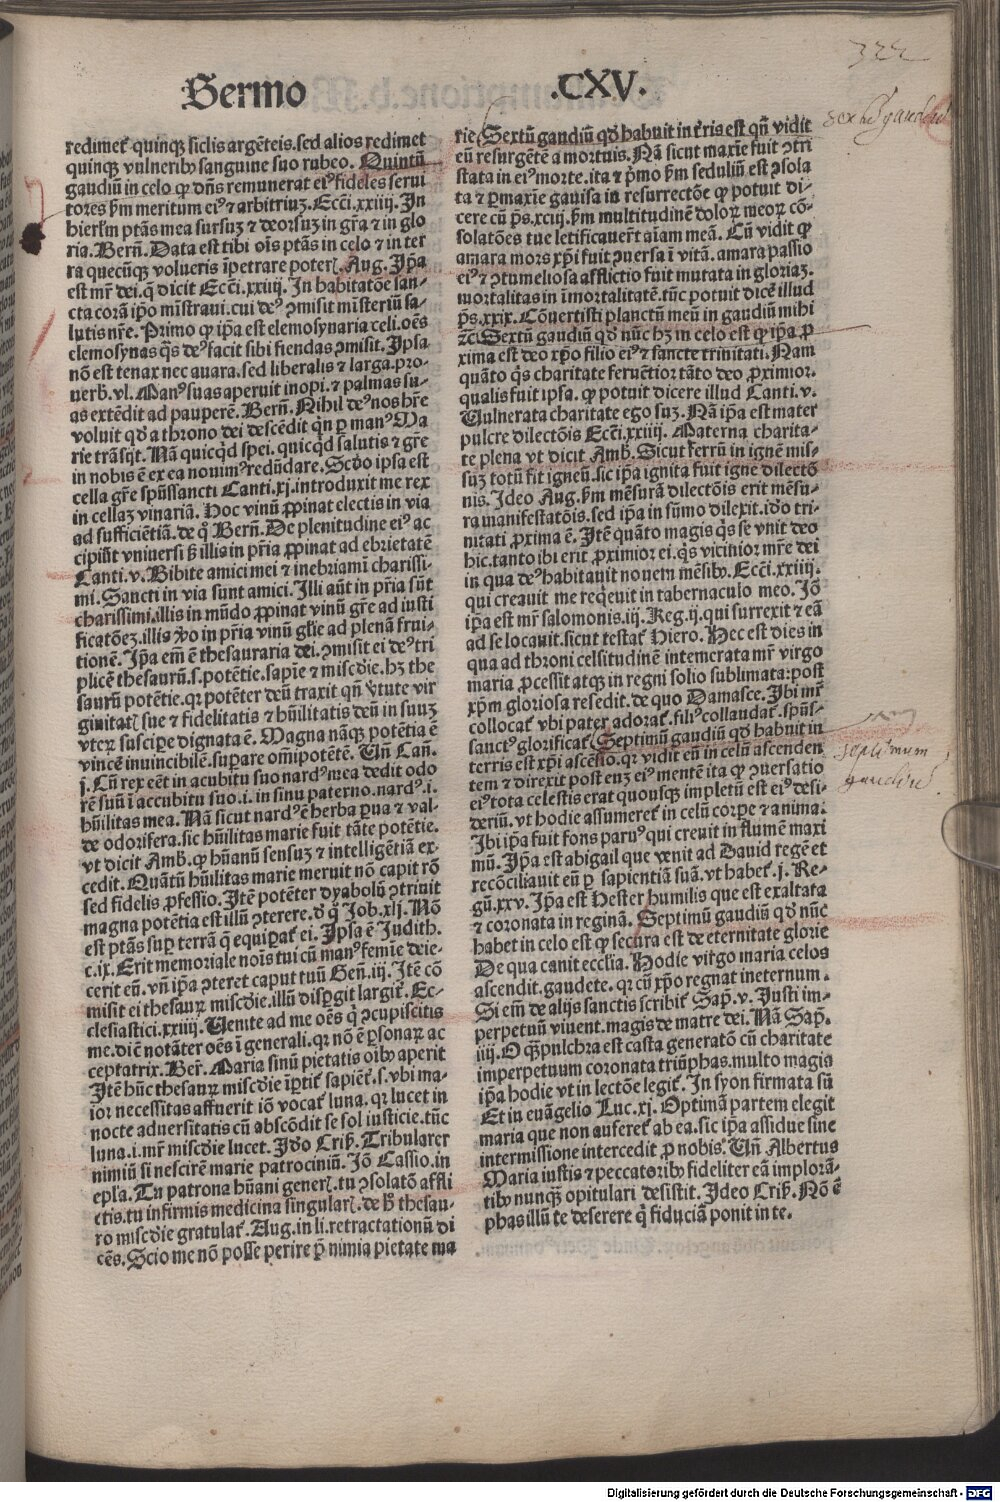 322
Sermo .CXV.
redimet̉ quinqꝫ siclis argẽteis. sed alios redimet
quinqꝫ vulneribꝰ sanguine suo rubeo. Quintũ
gaudiũ in celo qꝛ dñs remunerat eiꝰ fideles serui
tores ẜm meritum eiꝰ ⁊ arbitriuꝫ. Ecci. xxiiij. In
hierłm ptãs mea sursuꝫ ⁊ deorsuꝫ in gr̃a ⁊ in glo
ria. Berñ. Data est tibi oĩs ptãs in celo ⁊ in ter
ra quecũqꝫ volueris ĩpetrare poterꝭ. Aug. Ip̃a
est mr̃ dei. q̃ dicit Ecci. xxiiij. In habitatõe san-
cta corã ip̃o mĩstraui. cui deꝰ ↄmisit misteriũ sa-
lutis nr̃e. Primo qꝛ ip̃a est elemosynaria celi. oẽs
elemosynas q̃s deꝰ facit sibi fiendas ↄmisit. Ipsa
nõ est tenax nec auara. sed liberalis ⁊ larga. pro-
uerb. vl. Manꝰ suas aperuit inopi. ⁊ palmas su-
as extẽdit ad pauperẽ. Berñ. Nihil deꝰ nos hr̃e
voluit qd̓ a throno dei descẽdit qñ ꝑ manꝰ Ma
rie trãsijt. Nã quicqͥd spei. quicqͥd salutis ⁊ gr̃e
in nobis ẽ ex ea nouimꝰ redũdare. Scd̓o ipsa est
cella gr̃e spũssancti Canti. xj. introduxit me rex
in cellaꝫ vinariã. Hoc vinũ ꝓpinat electis in via
ad sufficiẽtiã. de qͦ Berñ. De plenitudine eiꝰ ac
cipiũt vniuersi ſꝫ illis in pr̃ia ꝓpinat ad ebrietatẽ
Canti. v. Bibite amici mei ⁊ inebriami charissi-
mi. Sancti in via sunt amici. Illi aũt in pr̃ia sũt
charissimi. illis in mũdo ꝓpinat vinũ gr̃e ad iusti
ficatõeꝫ. illis v̓o in pr̃ia vinũ gl̃ie ad plenã frui-
tionẽ. Ip̃a em̃ ẽ thesauraria dei. ↄmisit ei deꝰ tri
plicẽ thesaurũ. s. potẽtie. sapĩe ⁊ miscd̓ie. hꝫ the
saurũ potẽtie. qꝛ potẽter deũ traxit qñ v̓tute vir
ginitatꝭ sue ⁊ fidelitatis ⁊ hũilitatis deũ in suuꝫ
vteꝝ suscipe dignata ẽ. Magna nãqꝫ potẽtia ẽ
vincẽ inuincibilẽ. suꝑare omĩpotẽtẽ. Vñ Cañ.
j. Cũ rex eẽt in acubitu suo nardꝰ mea dedit odo
rẽ suũ ĩ accubitu suo. i. in sinu paterno. nardꝰ. i.
hũilitas mea. Nã sicut nardꝰ ẽ herba ꝑua ⁊ val-
de odorifera. sic hũilitas marie fuit tãte potẽtie.
vt dicit Amb. qꝛ hũanũ sensuꝫ ⁊ intelligẽtiã ex-
cedit. Quãtũ hũilitas marie meruit nõ capit rõ
sed fidelis ꝓfessio. Itẽ potẽter dyabolũ ↄtriuit
magna potẽtia est illũ ↄterere. d̓ qͦ Job. xlj. Nõ
est ptãs suꝑ terrã q̃ equiꝑat̉ ei. Ipsa ẽ Judith.
c. ix. Erit memoriale noĩs tui cũ manꝰ femĩe deie-
cerit eũ. vñ ip̃a ↄteret caput tuũ Geñ. iij. Itẽ cõ
misit ei thesauꝝ miscd̓ie. illũ disꝑgit largit̉. Ec-
clesiastici. xxiiij. Venite ad me oẽs q̃ ↄcupiscitis
me. diẽ notãter oẽs ĩ generali. qꝛ nõ ẽ ꝑsonaꝝ ac
ceptatrix. Ber̃. Maria sinũ pietatis oĩbꝰ aperit
Itẽ hũc thesauꝝ miscd̓ie ĩꝑtit̉ sapiẽt̉. s. vbi ma-
ior necessitas affuerit iõ vocat̉ luna. qꝛ lucet in
nocte aduersitatis cũ abscõdit se sol iusticie. tũc
luna. i. mr̃ miscd̓ie lucet. Id̓o Crib̃. Tribularer
nimiũ si nescirẽ marie patrociniũ. Iõ Cassio. in
epl̃a. Tu patrona hũani generꝭ. tu ↄsolatõ affli
ctis. tu infirmis medicina singularꝭ. de h̓ thesau-
ro miscd̓ie gratulat̉. Aug. in li. retractationũ di
cẽs. Scio me nõ posse perire ꝑ nimia pietate ma
rie Sextũ gaudiũ qd̓ habuit in t̃ris est qñ vidit
eũ resurgẽtẽ a mortuis. Nã sicut maxĩe fuit ↄtri
stata in eiꝰ morte. ita ⁊ pͥmo ẜm seduliũ est ↄsola
ta ⁊ ꝑmaxĩe gauisa in resurrectõe qꝛ potuit di-
cere cũ pš. xciij. ẜm multitudinẽ doloꝝ meoꝝ cõ-
solatões tue letificauer̃t aĩam meã. Cũ vidit qꝛ
amara mors xp̃i fuit ↄuersa ĩ vitã. amara passio
eiꝰ ⁊ ↄtumeliosa afflictio fuit mutata in gloriaꝫ.
mortalitas in ĩmortalitatẽ. tũc potuit dicẽ illud
pš. xxix. Cõuertisti planctũ meũ in gaudiũ mihi
⁊c̃. Sextũ gaudiũ qd̓ nũc hꝫ in celo est qꝛ ip̃a ꝓ
xima est deo xp̃o filio eiꝰ ⁊ sancte trinitati. Nam
quãto q̃s charitate feruẽtior tãto deo ꝓximior.
qualis fuit ipsa. qꝛ potuit dicere illud Canti. v.
Vulnerata charitate ego suꝫ. Nã ip̃a est mater
pulcre dilectõis Ecci. xxiiij. Materna charita-
te plena vt dicit Amb. Sicut ferrũ in ignẽ mis-
suꝫ totũ fit igneũ. sic ip̃a ignita fuit igne dilectõ
nis. Ideo Aug. ẜm mẽsurã dilectõis erit mẽsu-
ra manifestatõis. sed ip̃a in sũmo dilexit. id̓o tri-
nitati ꝓxima ẽ. Itẽ quãto magis q̃s se vnit deo
hic. tanto ibi erit ꝓximior ei. q̃s vicinior mr̃e dei
in qua deꝰ habitauit nouem mẽsibꝰ. Ecci. xxiiij.
qui creauit me req̓euit in tabernaculo meo. Iõ
ip̃a est mr̃ salomonis. iij. Reg. ij. qui surrexit ⁊ eã
ad se locauit. sicut testat̉ Hiero. Hec est dies in
qua ad throni celsitudinẽ intemerata mr̃ virgo
maria ꝓcessit atqꝫ in regni solio sublimata: post
xp̃m gloriosa resedit. de quo Damasce. Ibi mr̃
collocat̉ vbi pater adorat̉. filiꝰ collaudat̉. spũs-
sanctꝰ glorificat̉. Septimũ gaudiũ qd̓ habuit in
terris est xp̃i ascẽsio. qꝛ vidit eũ in celũ ascenden
tem ⁊ direxit post enꝫ eiꝰ mentẽ ita qꝛ ↄuersatio
eiꝰ tota celestis erat quousqꝫ impletũ est eiꝰ desi-
deriũ. vt hodie assumeret̉ in celũ corꝑe ⁊ anima.
Ibi ip̃a fuit fons paruꝰ qui creuit in flumẽ maxi
mũ. Ip̃a est abigail que venit ad Dauid regẽ et
recõciliauit eũ ꝑ sapientiã suã. vt habet̉. j. Re-
gũ. xxv. Ip̃a est Hester humilis que est exaltata
⁊ coronata in reginã. Septimũ gaudiũ qd̓ nũc
habet in celo est qꝛ secura est de eternitate glorie
De qua canit ecclĩa. Hodie virgo maria celos
ascendit. gaudete. qꝛ cũ xp̃o regnat ineternum.
Si em̃ de alijs sanctis scribit̉ Sap̃. v. Iusti im-
perpetuũ viuent. magis de matre dei. Nã Sap̃.
iiij. O q̃ꝫpulchra est casta generatõ cũ charitate
imperpetuum coronata triũphas. multo magis
ip̃a hodie vt in lectõe legit̉. In syon firmata sũ
Et in euãgelio Luc. xj. Optimã partem elegit
maria que non auferet̉ ab ea. sic ip̃a assidue sine
intermissione intercedit ꝓ nobis. Vñ Albertus
Maria iustis ⁊ peccatoribꝰ fideliter eã implorã-
tibꝰ nunqꝫ̃ opitulari desistit. Ideo Crib̃. Nõ ẽ
phas illũ te deserere q̃ fiduciã ponit in te.
sextũ gaudiũ
septimum
gaudiũ.
Digitalisierung gefördert durch die Deutsche Forschungsgemeinschaft - DFG